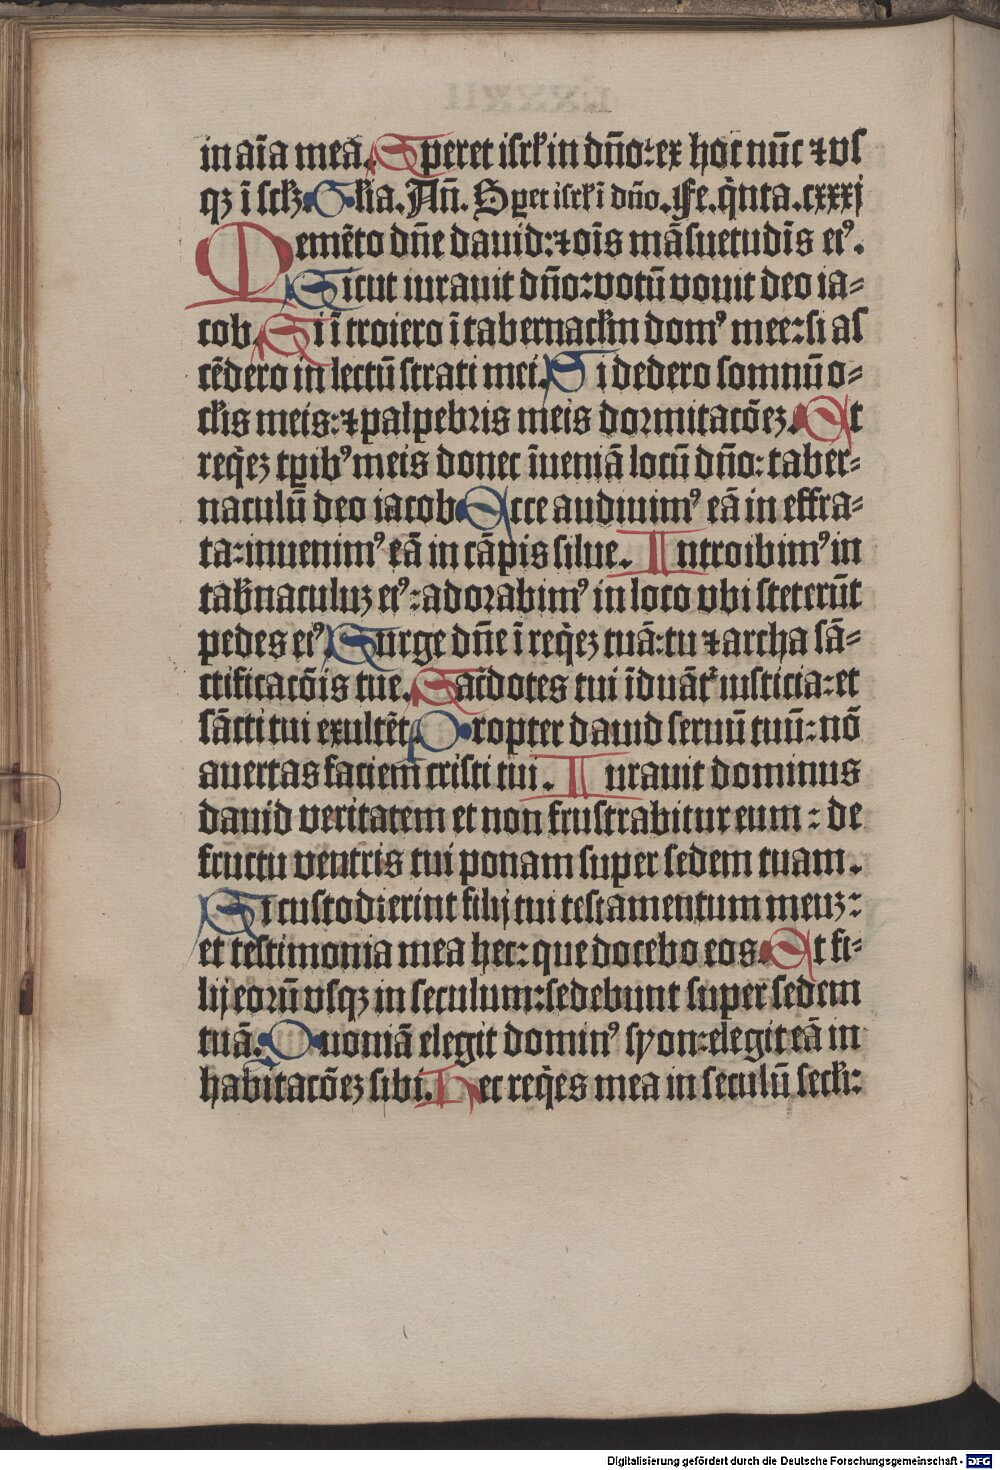 in aīa mea. Speret isrl' in dn̄o: ex hoc nūc ⁊ vs
qꝫ ī sclꝫ. G l'ia. An̄. Sꝑet isrl' ī dn̄o. Fe. q̄nta. cxxxj
Memēto dn̄e dauid: ⁊ oīs māsuetudīs eiꝰ.
Sicut iurauit dn̄o: votū vouit deo ia⸗
cob. Si ītroiero ī tabernacl'm domꝰ mee: si as
cēdero in lectū strati mei. Si dedero somnū o⸗
cl'is meis: ⁊ palpebris meis dormitacōeꝫ. Et
req̄eꝫ tꝑibꝰ meis donec īueniā locū dn̄o: taber⸗
naculū deo iacob. Ecce audiuimꝰ eā in effra⸗
ta: inuenimꝰ eā in cāpis silue. Introibimꝰ in
tab̄naculuꝫ eiꝰ: adorabimꝰ in loco vbi steterūt
pedes eiꝰ. Surge dn̄e ī req̄eꝫ tuā: tu ⁊ archa sā⸗
ctificacōis tue. Sac̄dotes tui īduāt᷑ iusticia: et
sācti tui exultēt. Propter dauid seruū tuū: nō
auertas faciem cristi tui. Iurauit dominus
dauid veritatem et non frustrabitur eum: de
fructu ventris tui ponam super sedem tuam.
Si custodierint filij tui testamentum meuꝫ:
et testimonia mea hec: que docebo eos. Et fi⸗
lij eorū vsqꝫ in seculum: sedebunt super sedem
tuā. Quoniā elegit dominꝰ syon: elegit eā in
habitacōeꝫ sibi. Hec req̄es mea in seculū secl'i:
Digitalisierung gefördert durch die Deutsche Forschungsgemeinschaft - DFG